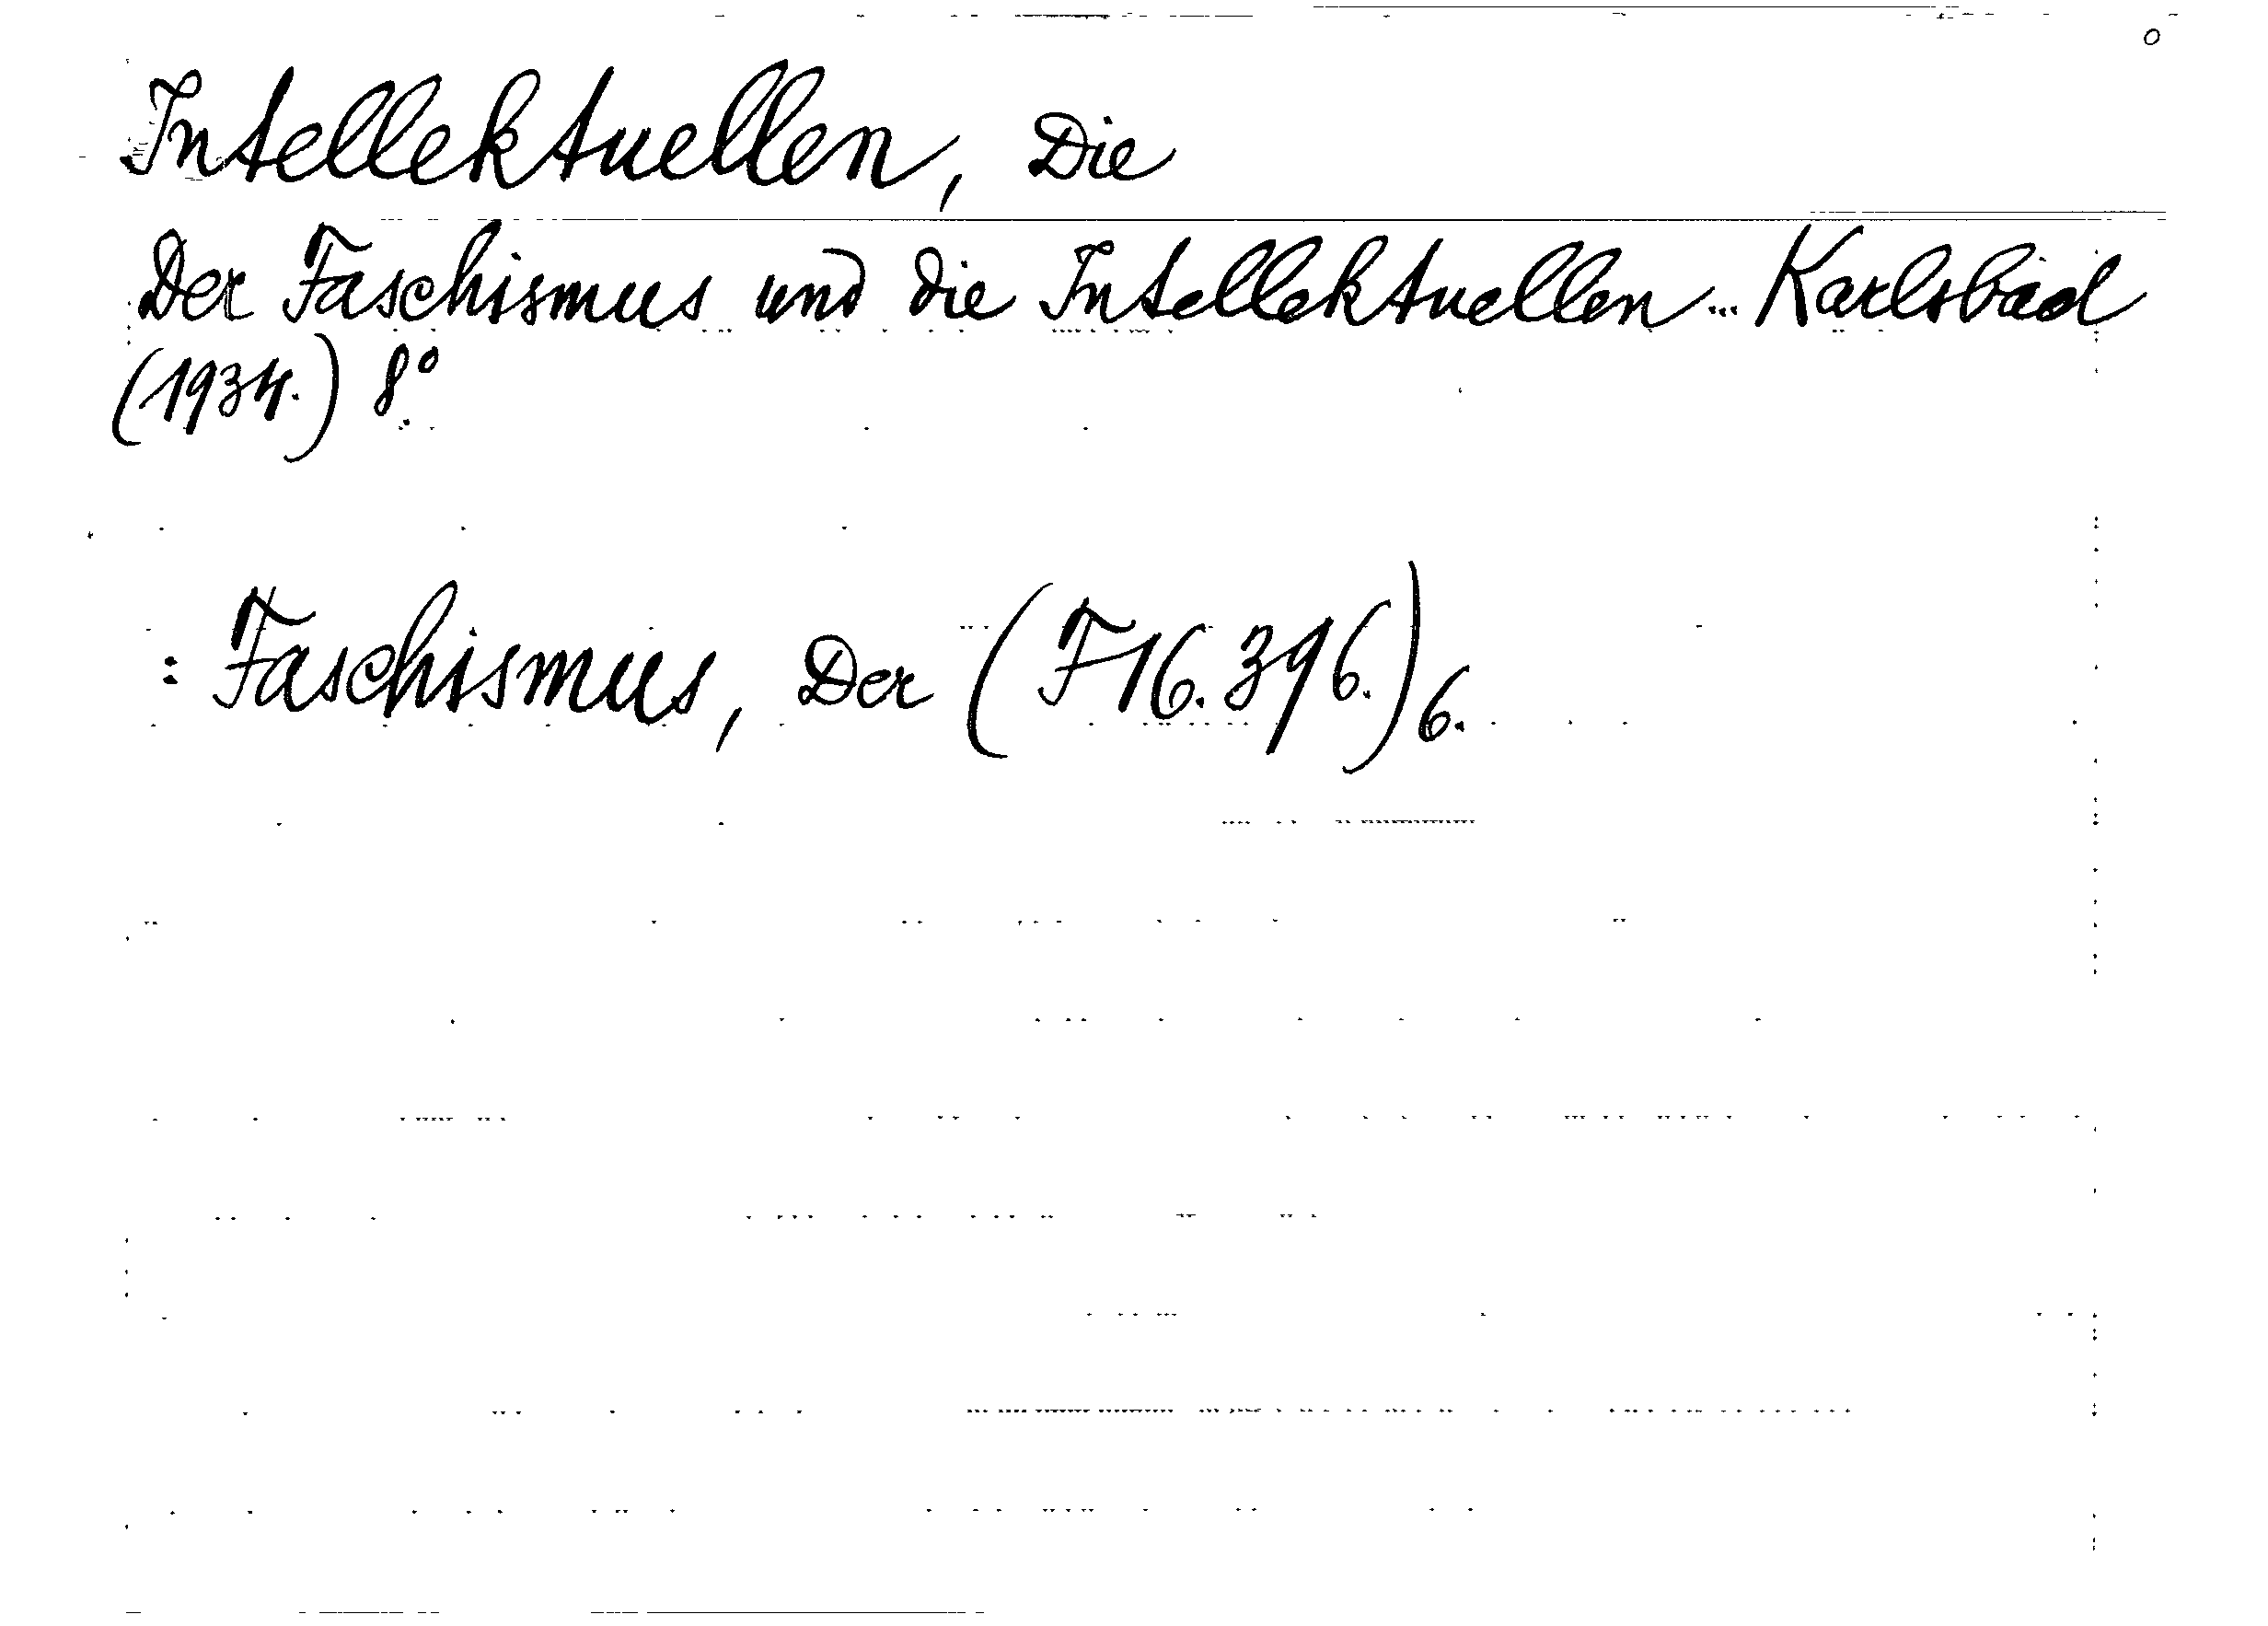 Intellektuellen, Die
Der Faschismus und die Intellektuellen... Karlsbad
(1934.) 8°.
: Faschismus, Der (F16.396.)6.